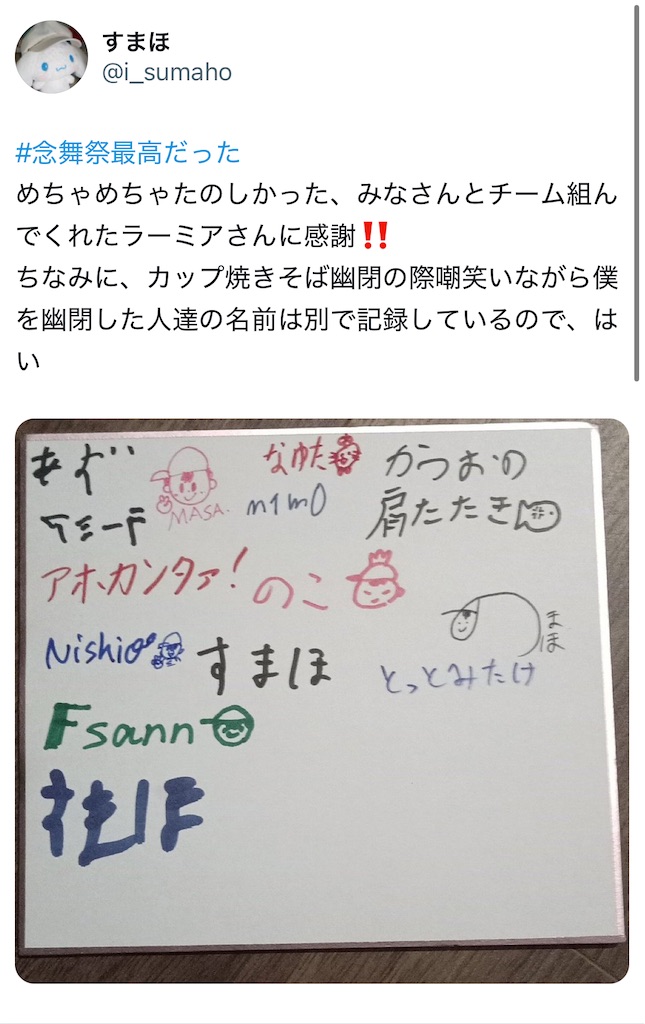 すまほ
@i_sumaho
#念舞祭最高だった
めちゃめちゃたのしかった、みなさんとチーム組ん
でくれたラーミアさんに感謝‼️
ちなみに、カップ焼きそば幽閉の際嘲笑いながら僕
を幽閉した人達の名前は別で記録しているので、は
い
MASA.
なゆた
m1m0
かつおの
肩たたき
アホカンタァ!
のこ
Nishio
すまほ
まほ
とっとみたけ
Fsann